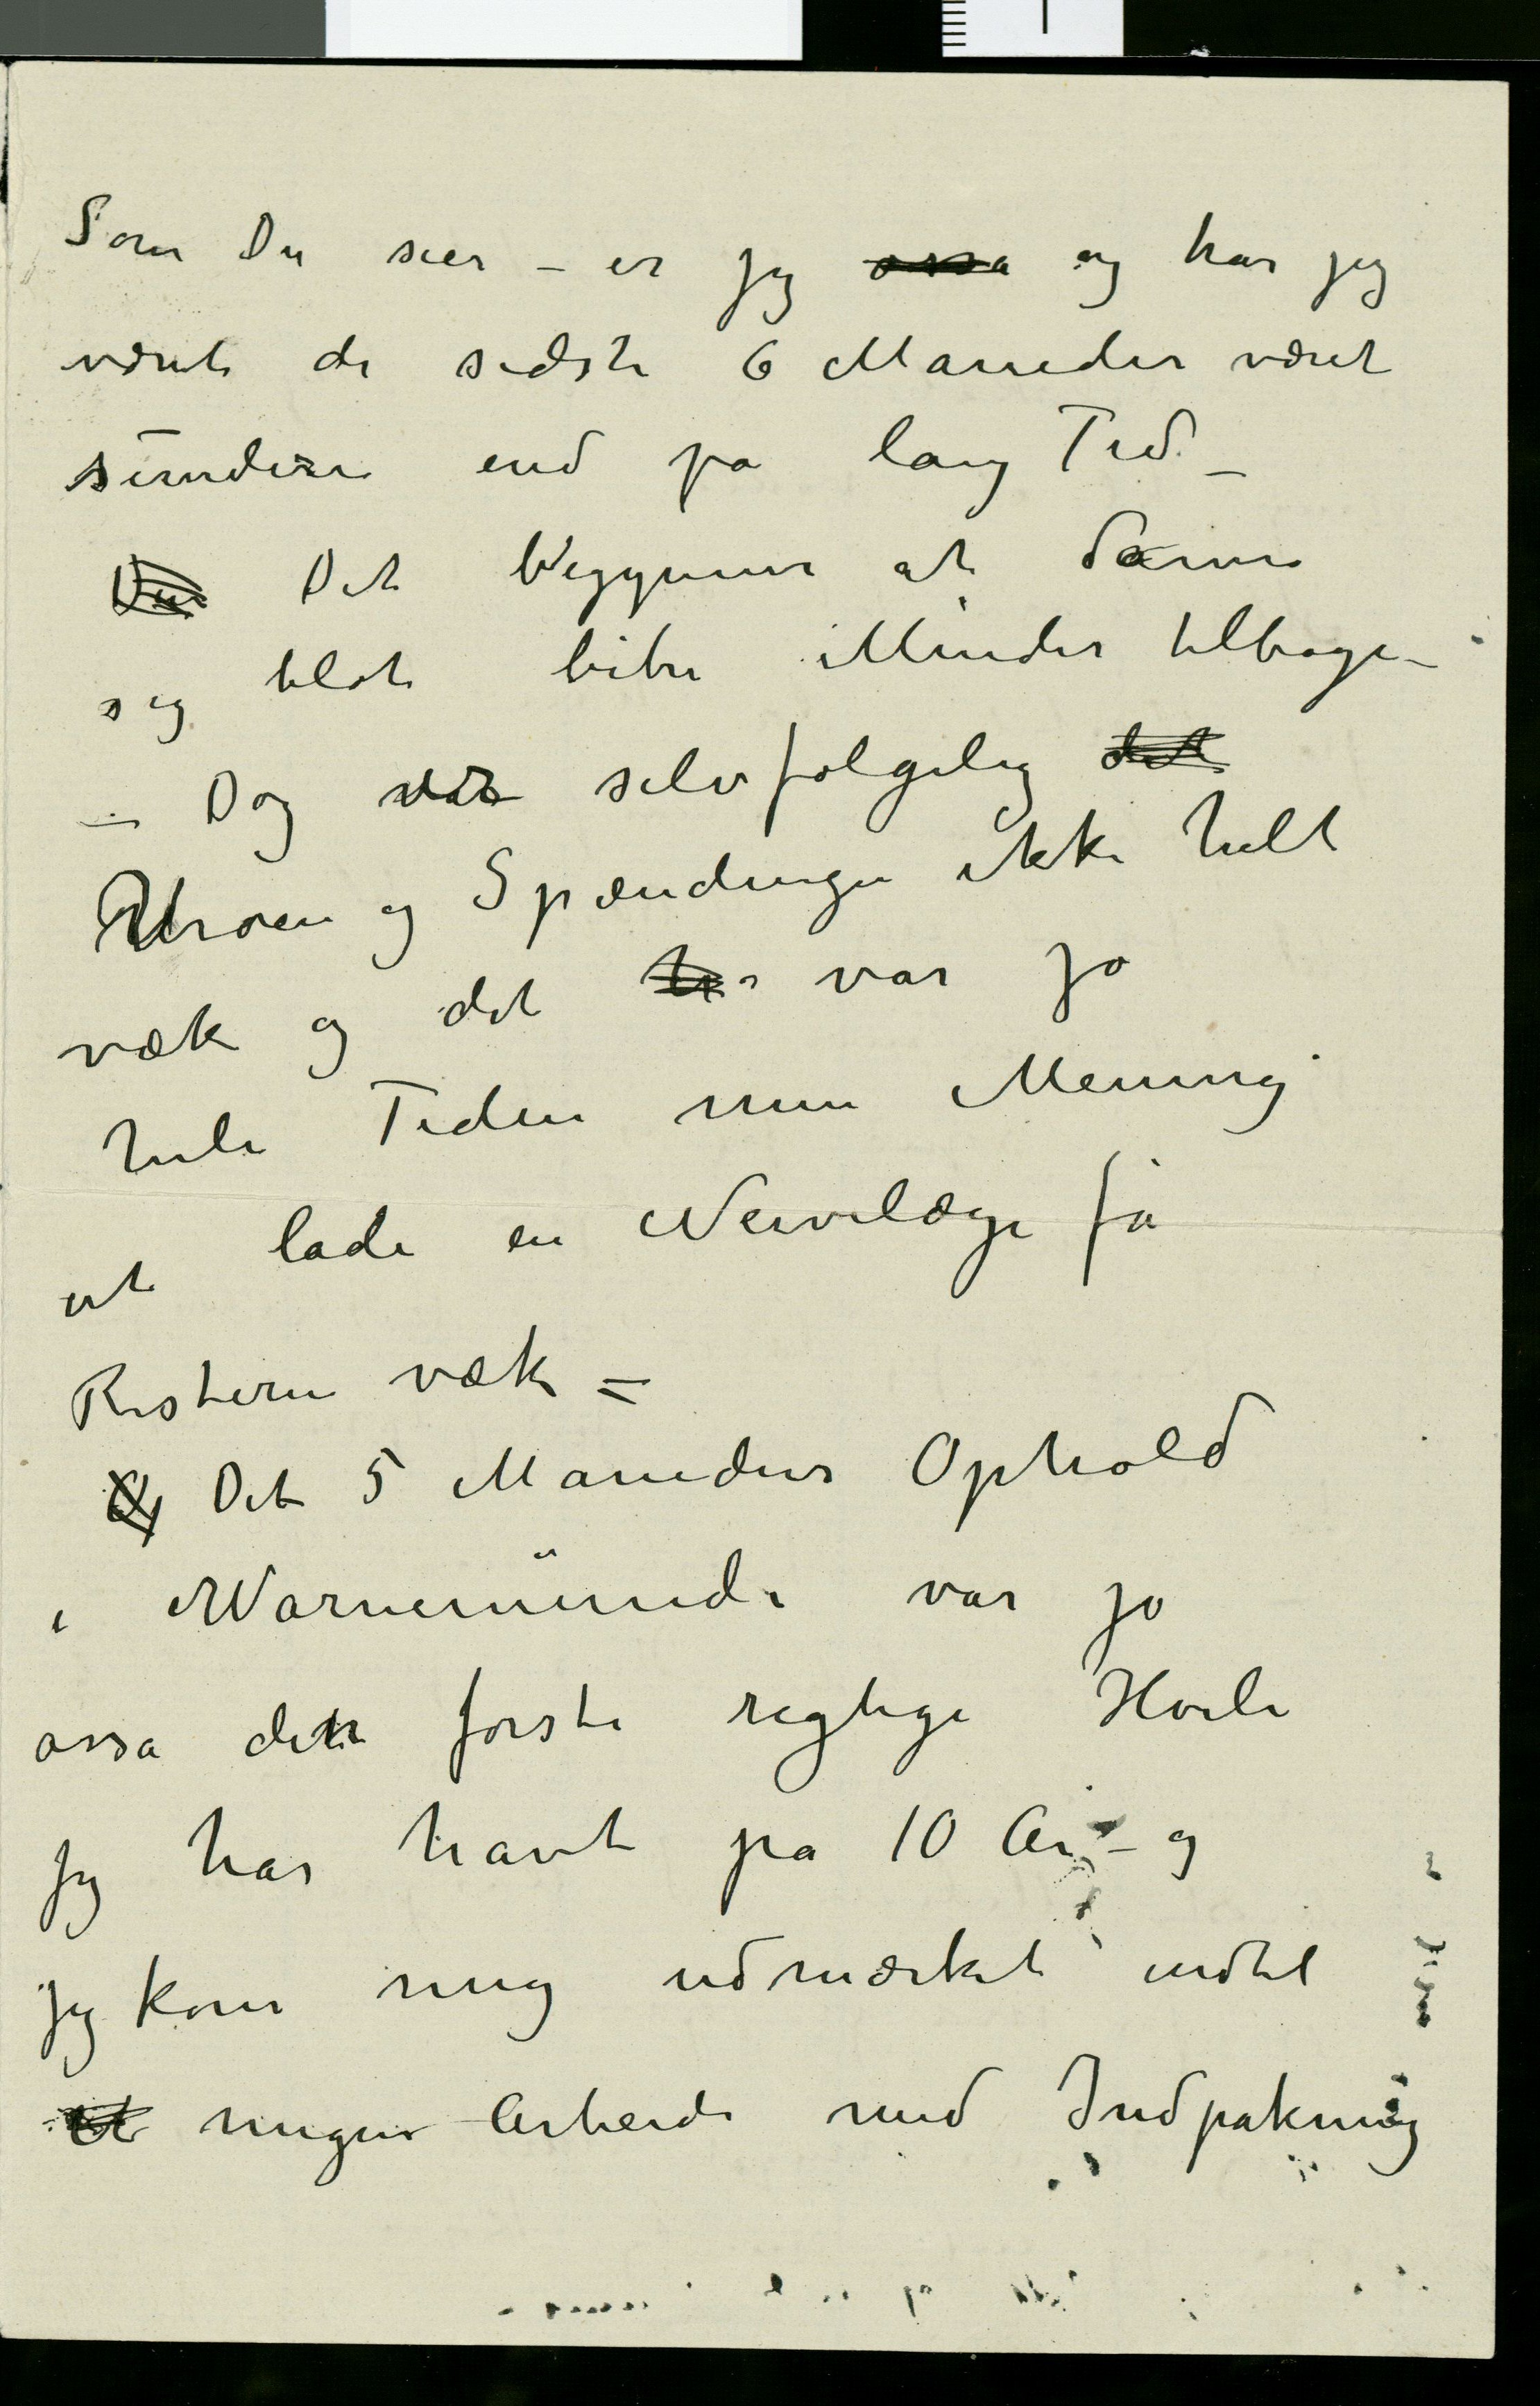 Som Du sier – er jeg ossa og har jeg
været de sidste 6 Maneder været
sundere end pa lang Tid –
Du Det begynner at danne
sig blot bitre Minder tilbage –
– Dog var selvfølgelig det
Uroen og Spændingen ikke helt
væk og det var jo
hele Tiden min Mening
at lade en Nervelæge få
Resterne væk –
Og Det 5 Maneders Ophold
i Warnemünde var jo
ossa den første rigtige Hvile
jeg har havt på 10 År – og
jeg kom mig udmærket indtil
et megen Arbeide med Indpakning